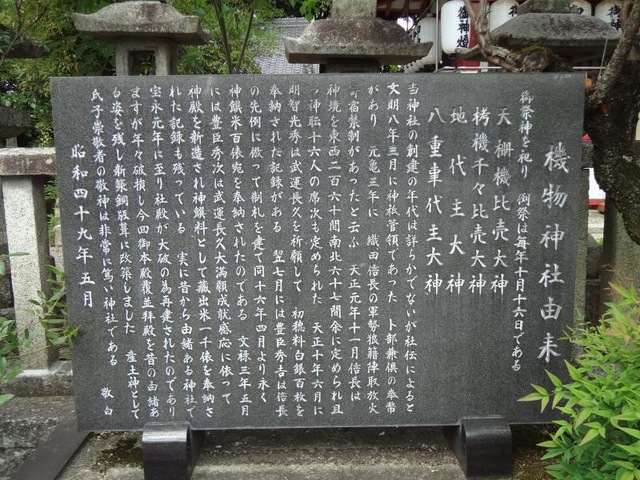 機物神社由来
御祭神を祀り 例祭は毎年十月十六日である
天棚機比売大神
栲機千々比売大神
地代主大神
八重事代主大神
当神社の創建の年代は詳らかでないが社伝によると
文明八年三月に神祇管領であった卜部兼倶の奉幣
があり 元亀三年に 織田信長の軍勢狼藉陣取放火
寄宿禁制があったと云ふ 天正元年十一月信長は
神境を東西二百六十間南北六十七間余に定められ且
つ神職十六人の席次も定められた 天正十年六月に
明智光秀は武運長久を祈願して 初穂料白銀百枚を
奉納された記録がある 翌七月には豊臣秀吉は信長
の先例に倣って制札を建て同十六年四月より永く
神饌米百俵宛を奉納されたのである 文禄三年五月
には豊臣秀次は武運長久大満願成就感応に依って
神殿を新造され神饌料として蔵出米一千俵を奉納さ
れた記録も残っている 実に昔から由緒ある神社で
宝永元年に至り社殿が大破の為再建されたのであり
ますが年々破損し今回御本殿覆並拝殿を昔の由緒あ
る姿を残し新築銅版葺に改築しました 産土神として
氏子崇敬者の敬神は非常に篤い神社である 敬白
昭和四十九年五月
御神燈